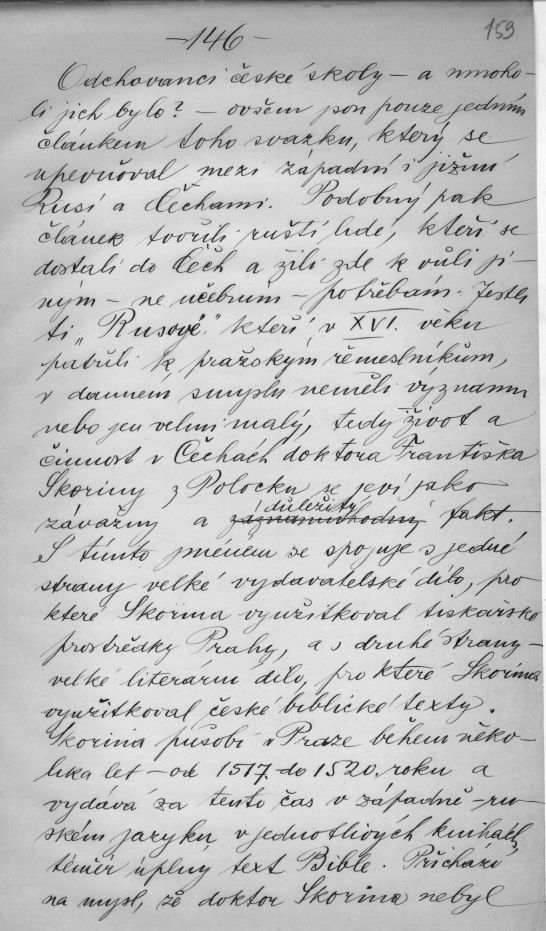 -146-
159
Odchovanci české školy - a mnoho-
li jich bylo? - ovšem jsou pouze jedním
článkem toho svazku, který se
upevňoval mezi západní i jižní
Rusí a Čechami. Podobný pak
článek tvořili ruští lidé, kteří se
dostali do Čech a žili zde k vůli ji-
ným - ne učebním - potřebám. Jestli
ti „Rusové" kteří v XVI. věku
patřili k pražským řemeslníkům,
v daném smyslu neměli významu
nebo jen velmi malý, tedy život a
činnost v Čechách doktora Františka
Skoriny z Polocku se jeví jako
závažný a záznamuhodný důležitý fakt.
S tímto jménem se spojuje s jedné
strany velké vydavatelské dílo, pro
které Skorina využitkoval tiskařské
prostředky Prahy, a s druhé strany -
velké literární dílo, pro které Skorina
využitkoval české biblické texty.
Skorina působí v Praze během něko-
lika let - od 1517. do 1520. roku a
vydává za tento čas v západně-ru-
ském jazyku, v jednotlivých knihách,
téměř úplný text Bible. Přichází
na mysl, že doktor Skorina nebyl